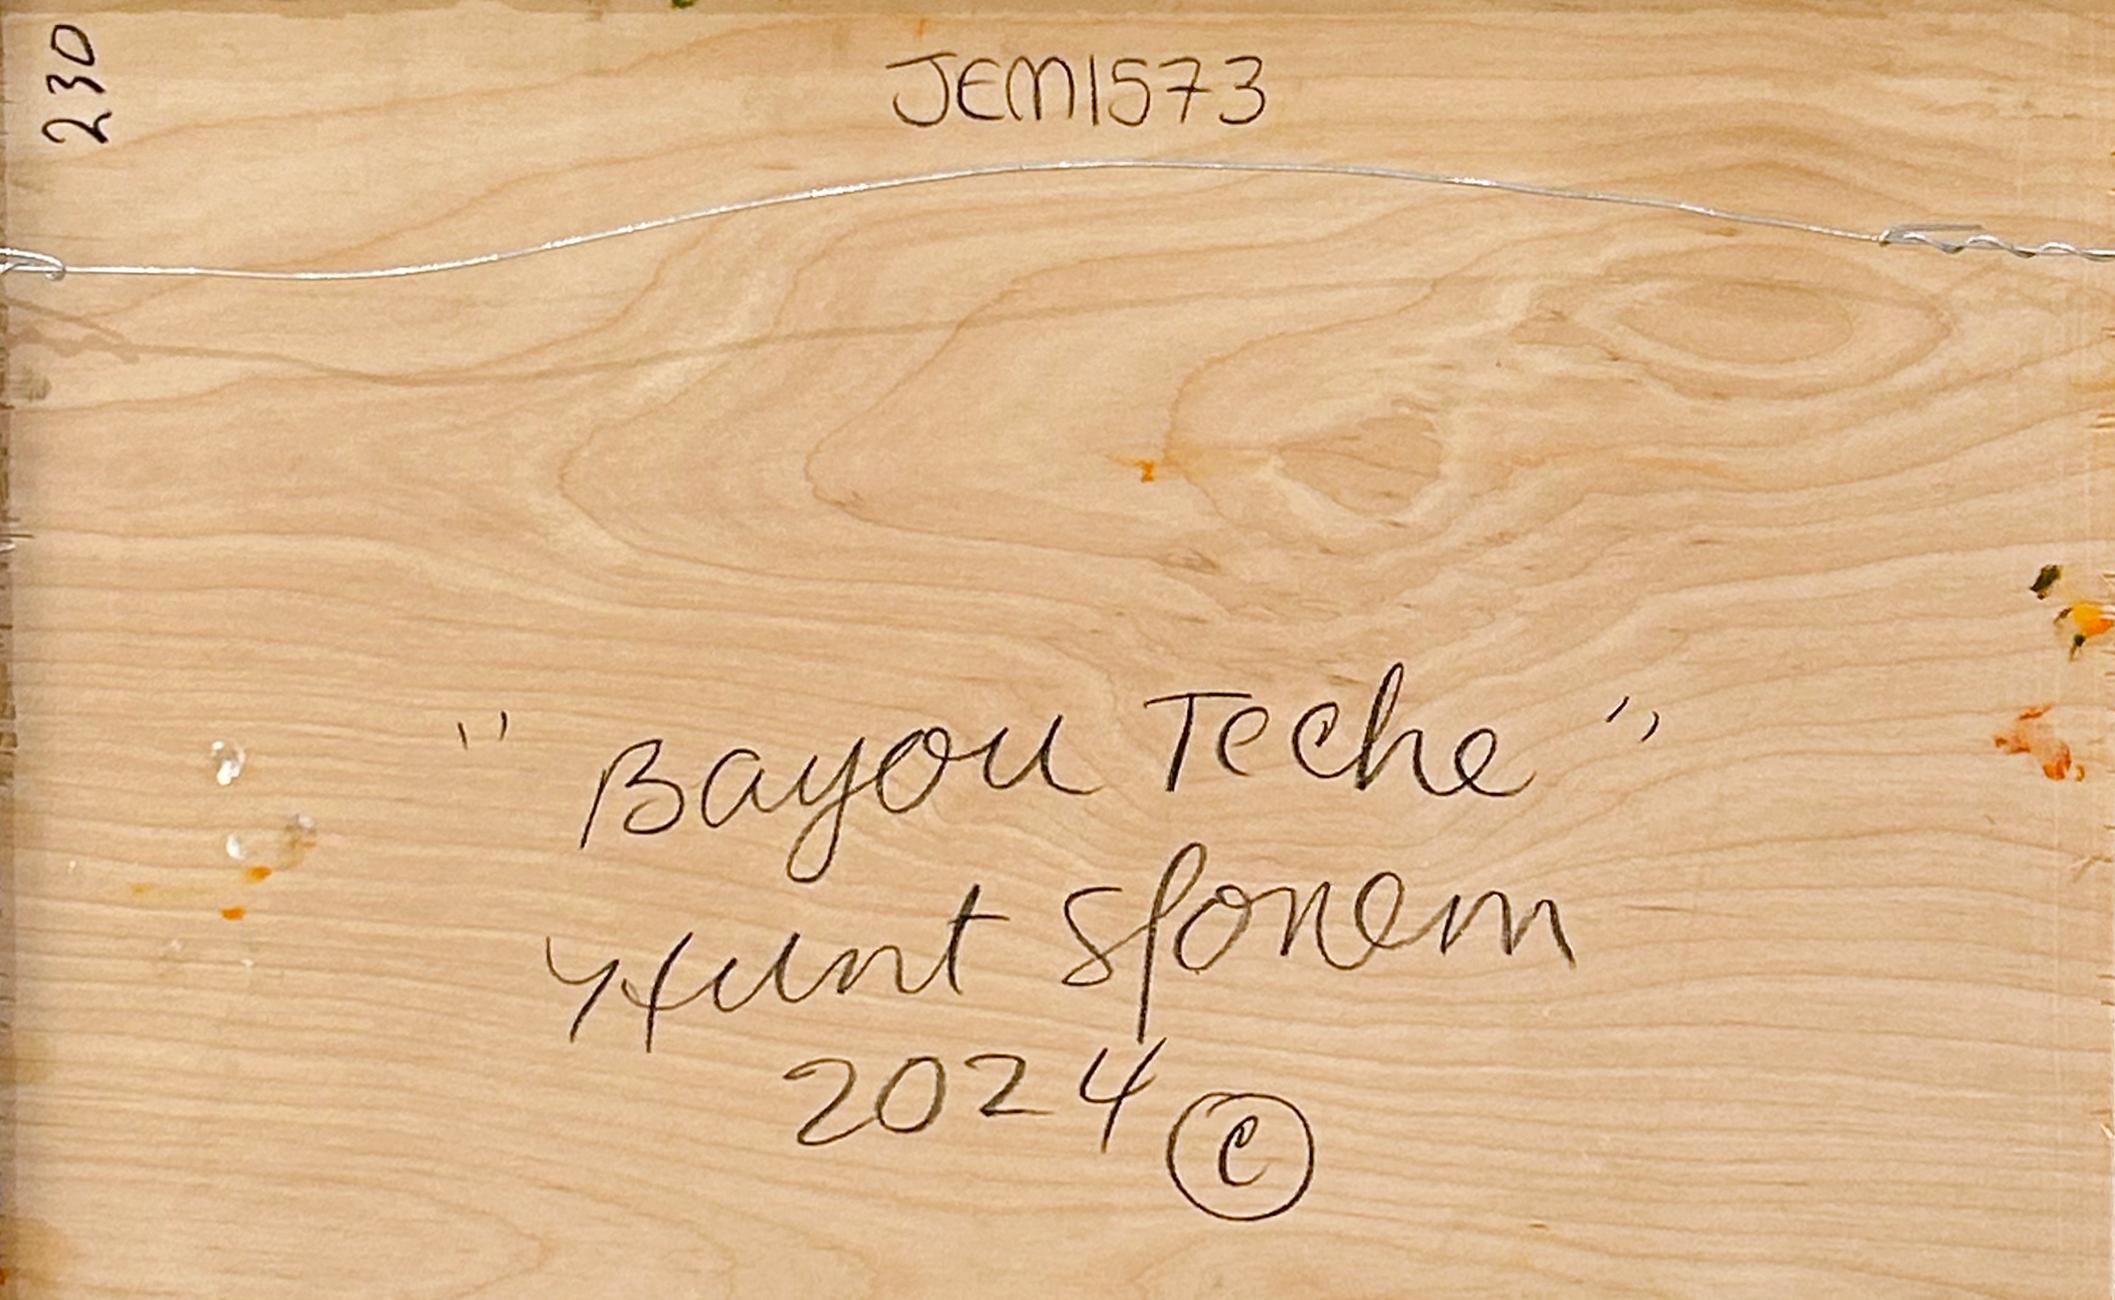 230
JEM1573
"Bayou Teche"
Hunt Slonem
2024 ©